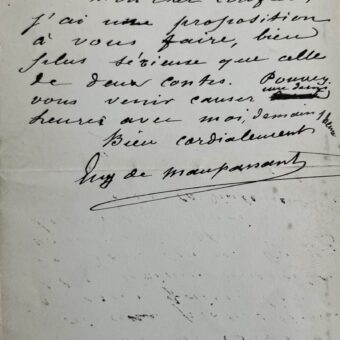 mon cher confrère,
j'ai une proposition
à vous faire, bien
plus sérieuse que celle
de deux contes. Pouvez
vous venir causer une demi
heure avec moi, demain
Bien cordialement
Guy de Maupassant